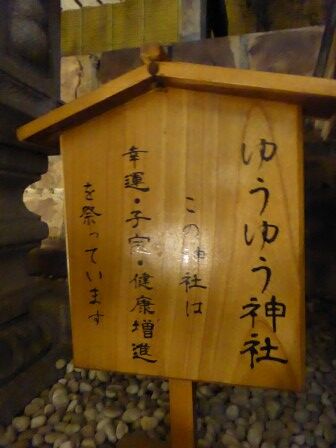 ゆうゆう神社
この神社は
幸運・子宝・健康増進
を祭っています